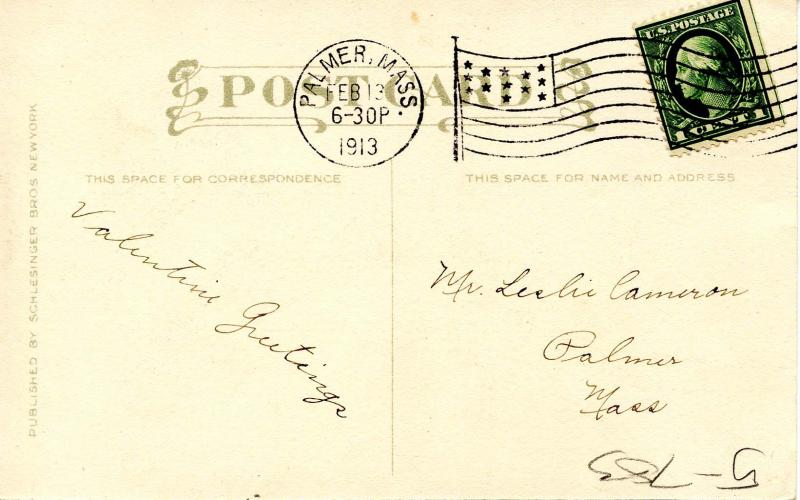 POST CARD
PALMER, MASS.
FEB 13
6-30P
1913
U.S. POSTAGE
1 CENT 1
THIS SPACE FOR CORRESPONDENCE
THIS SPACE FOR NAME AND ADDRESS
PUBLISHED BY SCHLESINGER BROS NEW YORK
Valentine Greetings
Mr. Leslie Cameron
Palmer
Mass